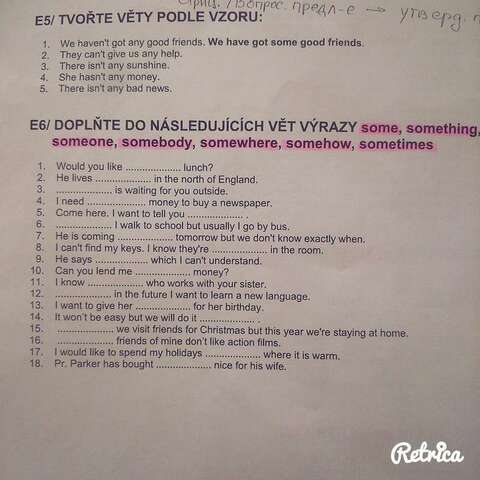 /вопрос. предл-е → утверд.
E5/ TVOŘTE VĚTY PODLE VZORU:
1. We haven't got any good friends. We have got some good friends.
2. They can't give us any help.
3. There isn't any sunshine.
4. She hasn't any money.
5. There isn't any bad news.
E6/ DOPLŇTE DO NÁSLEDUJÍCÍCH VĚT VÝRAZY some, something,
someone, somebody, somewhere, somehow, sometimes
1. Would you like .................... lunch?
2. He lives .................... in the north of England.
3. .................... is waiting for you outside.
4. I need .................... money to buy a newspaper.
5. Come here. I want to tell you .................... .
6. .................... I walk to school but usually I go by bus.
7. He is coming .................... tomorrow but we don't know exactly when.
8. I can't find my keys. I know they're .................... in the room.
9. He says .................... which I can't understand.
10. Can you lend me .................... money?
11. I know .................... who works with your sister.
12. .................... in the future I want to learn a new language.
13. I want to give her .................... for her birthday.
14. It won't be easy but we will do it .................... .
15. .................... we visit friends for Christmas but this year we're staying at home.
16. .................... friends of mine don't like action films.
17. I would like to spend my holidays .................... where it is warm.
18. Pr. Parker has bought .................... nice for his wife.
Retrica